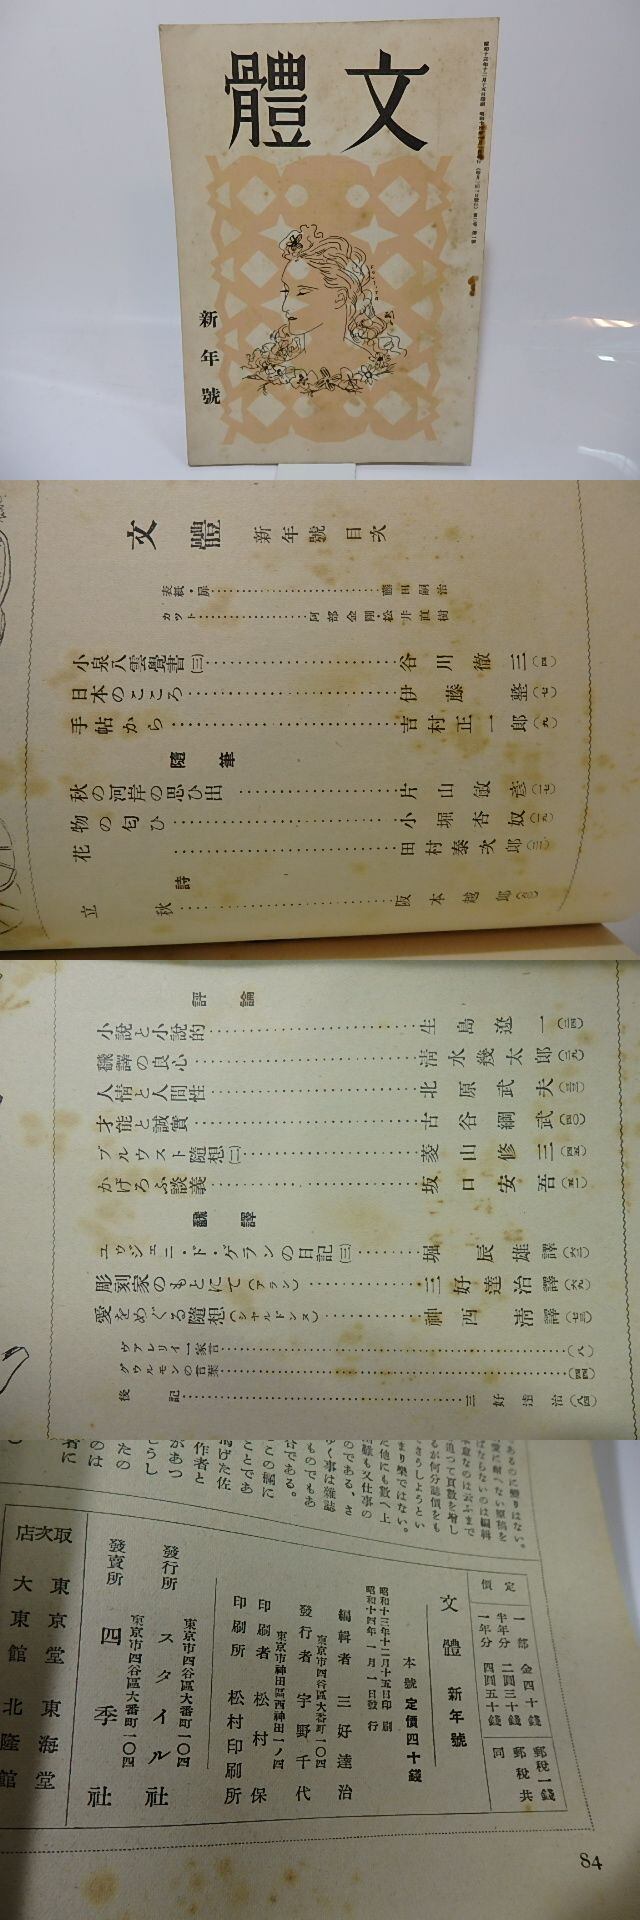 文體
新年號
文體 新年號 目次
表紙・扉……藤田嗣治
カット……阿部金剛・松井直樹
小泉八雲覺書(三)……谷川徹三(四)
日本のこころ……伊藤整(七)
手帖から……吉村正一郎(九)
隨筆
秋の河岸の思ひ出……片山敏彦(一七)
物の匂ひ……小堀杏奴(一九)
花……田村泰次郎(二一)
詩
立秋……阪本越郎
評論
小說と小說的……生島遼一(二四)
飜譯の良心……清水幾太郎(二九)
人情と人間性……北原武夫(三三)
才能と誠實……古谷綱武(四〇)
プルウスト隨想(二)……菱山修三(四五)
かげろふ談義……坂口安吾(五一)
飜譯
ユウジェニ・ド・ゲランの日記(三)……堀辰雄譯(六三)
彫刻家のもとにて(アラン)……三好達治譯(六九)
愛をめぐる隨想(シャルドンヌ)……神西清譯(七三)
ヴァレリイ一家言……(八)
グウルモンの言葉……(四四)
後記……三好達治(八四)
定價
一部 金四十錢 郵稅一錢
半年分 二四三十錢 郵稅共
一年分 四四五十錢 同
文體 新年號
本號定價四十錢
昭和十三年十二月十五日印刷
昭和十四年一月一日發行
編輯者 三好達治
東京市四谷區大番町一〇四
發行者 宇野千代
東京市神田區西神田一ノ四
印刷者 松村保
印刷所 松村印刷所
東京市四谷區大番町一〇四
發行所 スタイル社
東京市四谷區大番町一〇四
發賣所 四季社
取次店
東京堂 東海堂
大東館 北隆館
84